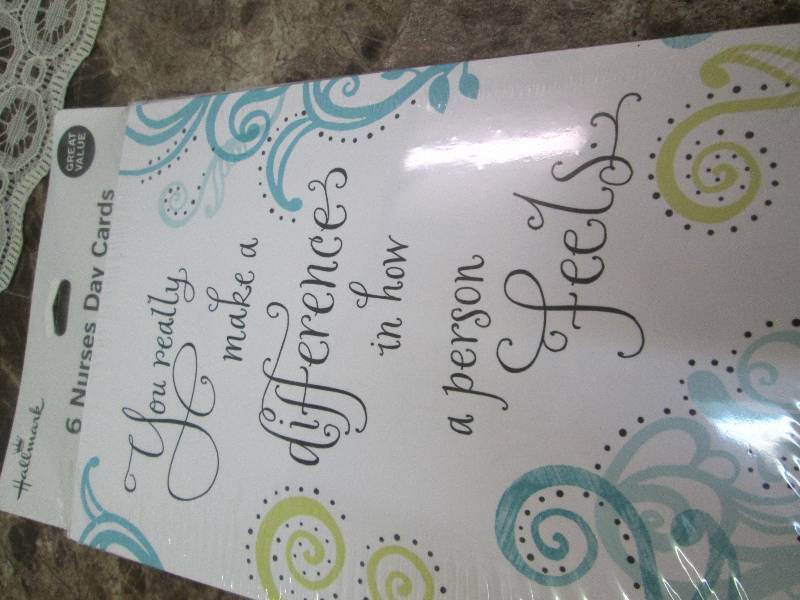 Hallmark
6 Nurses Day Cards
GREAT
VALUE
You really
make a
difference
in how
a person
feels